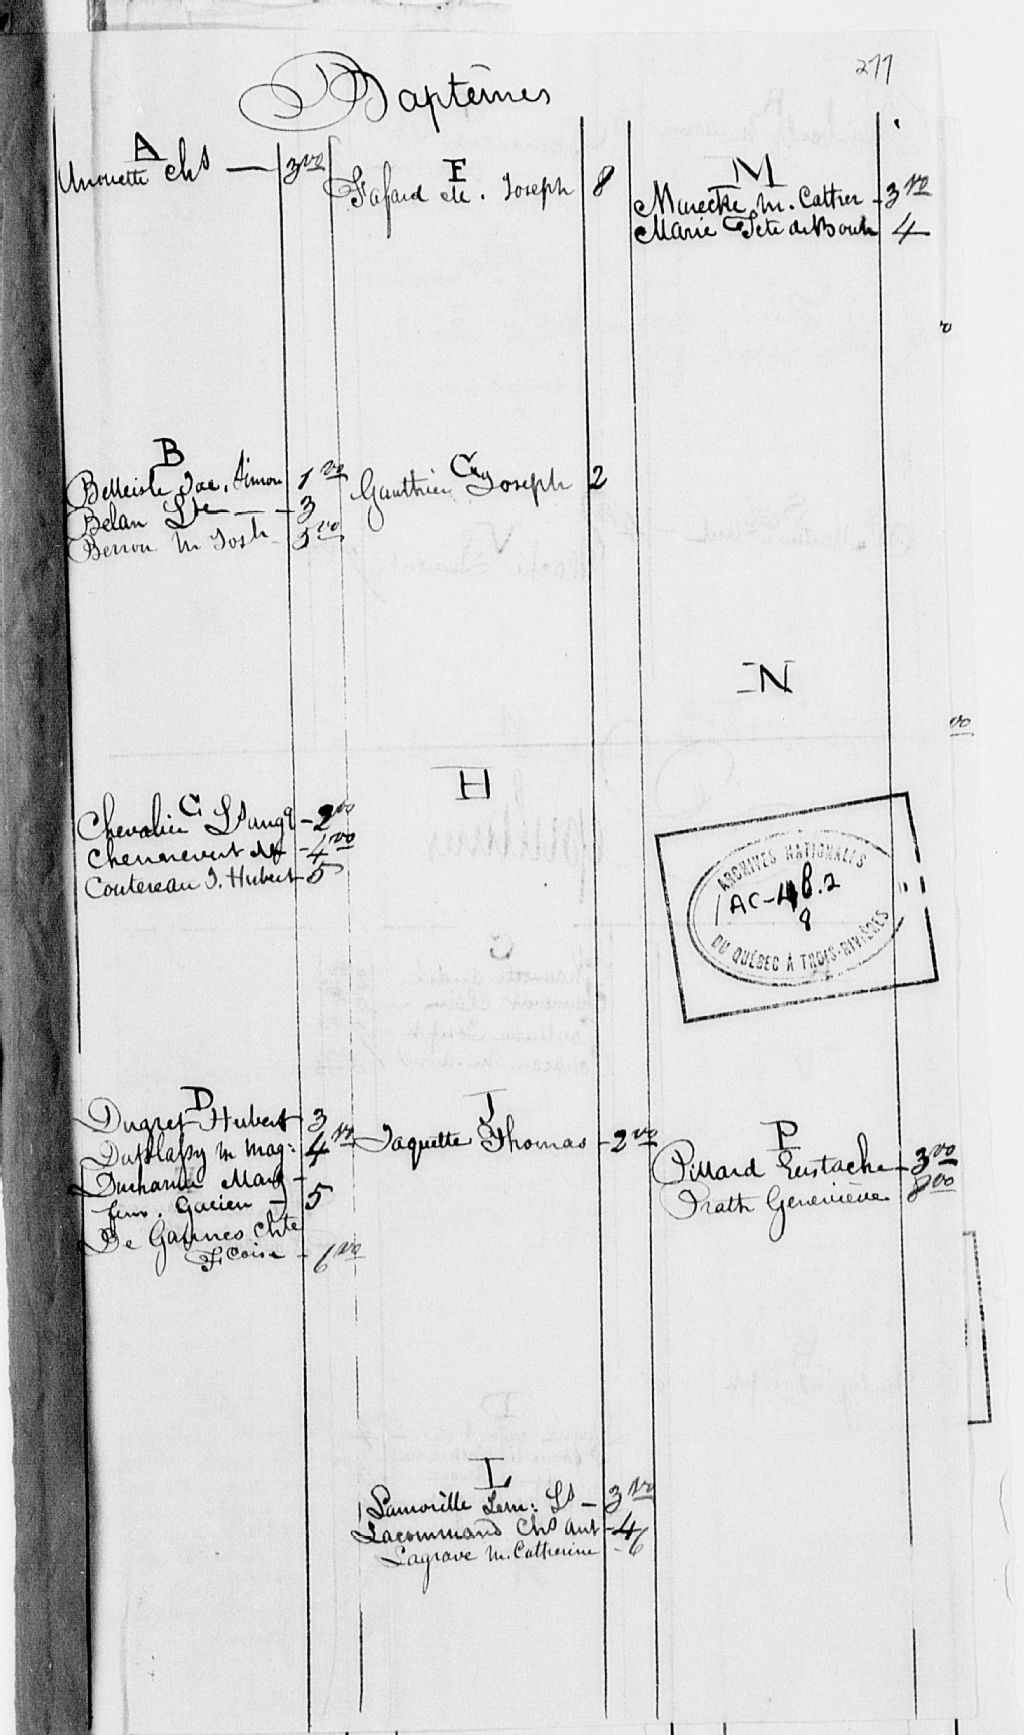 277
Baptêmes
A
Chs — 3 vo
B
Belleisle Jac. Simon 1 vo
Belan — 3
Berrou M Josh 5 vo
C
Chevalier Ls angé - 2 vo
Chenevert - 4 vo
Coutereau J. Hubert - 5
D
Dugret Hubert 3
Duplassy M Mag: 4 vo
Ducharme Marg -
fem. Garien - 5
De Gannes Chte
Fcoise - 6 vo
F
Fafard Joseph 8
G
Gauthier Joseph 2
H
J
Jaquette Thomas - 2 vo
L
Lamorille Lem: Ls - 3 vo
Lacommand Chs ant - 4
Lagrave M. Catherine - 6
M
M. Cather - 3 vo
Marie Tete de Boule 4
N
ARCHIVES NATIONALES
AC-48.2
8
DU QUÉBEC À TROIS-RIVIÈRES
P
Pillard Eustache - 3 vo
Prath Geneviève 8 vo
vo